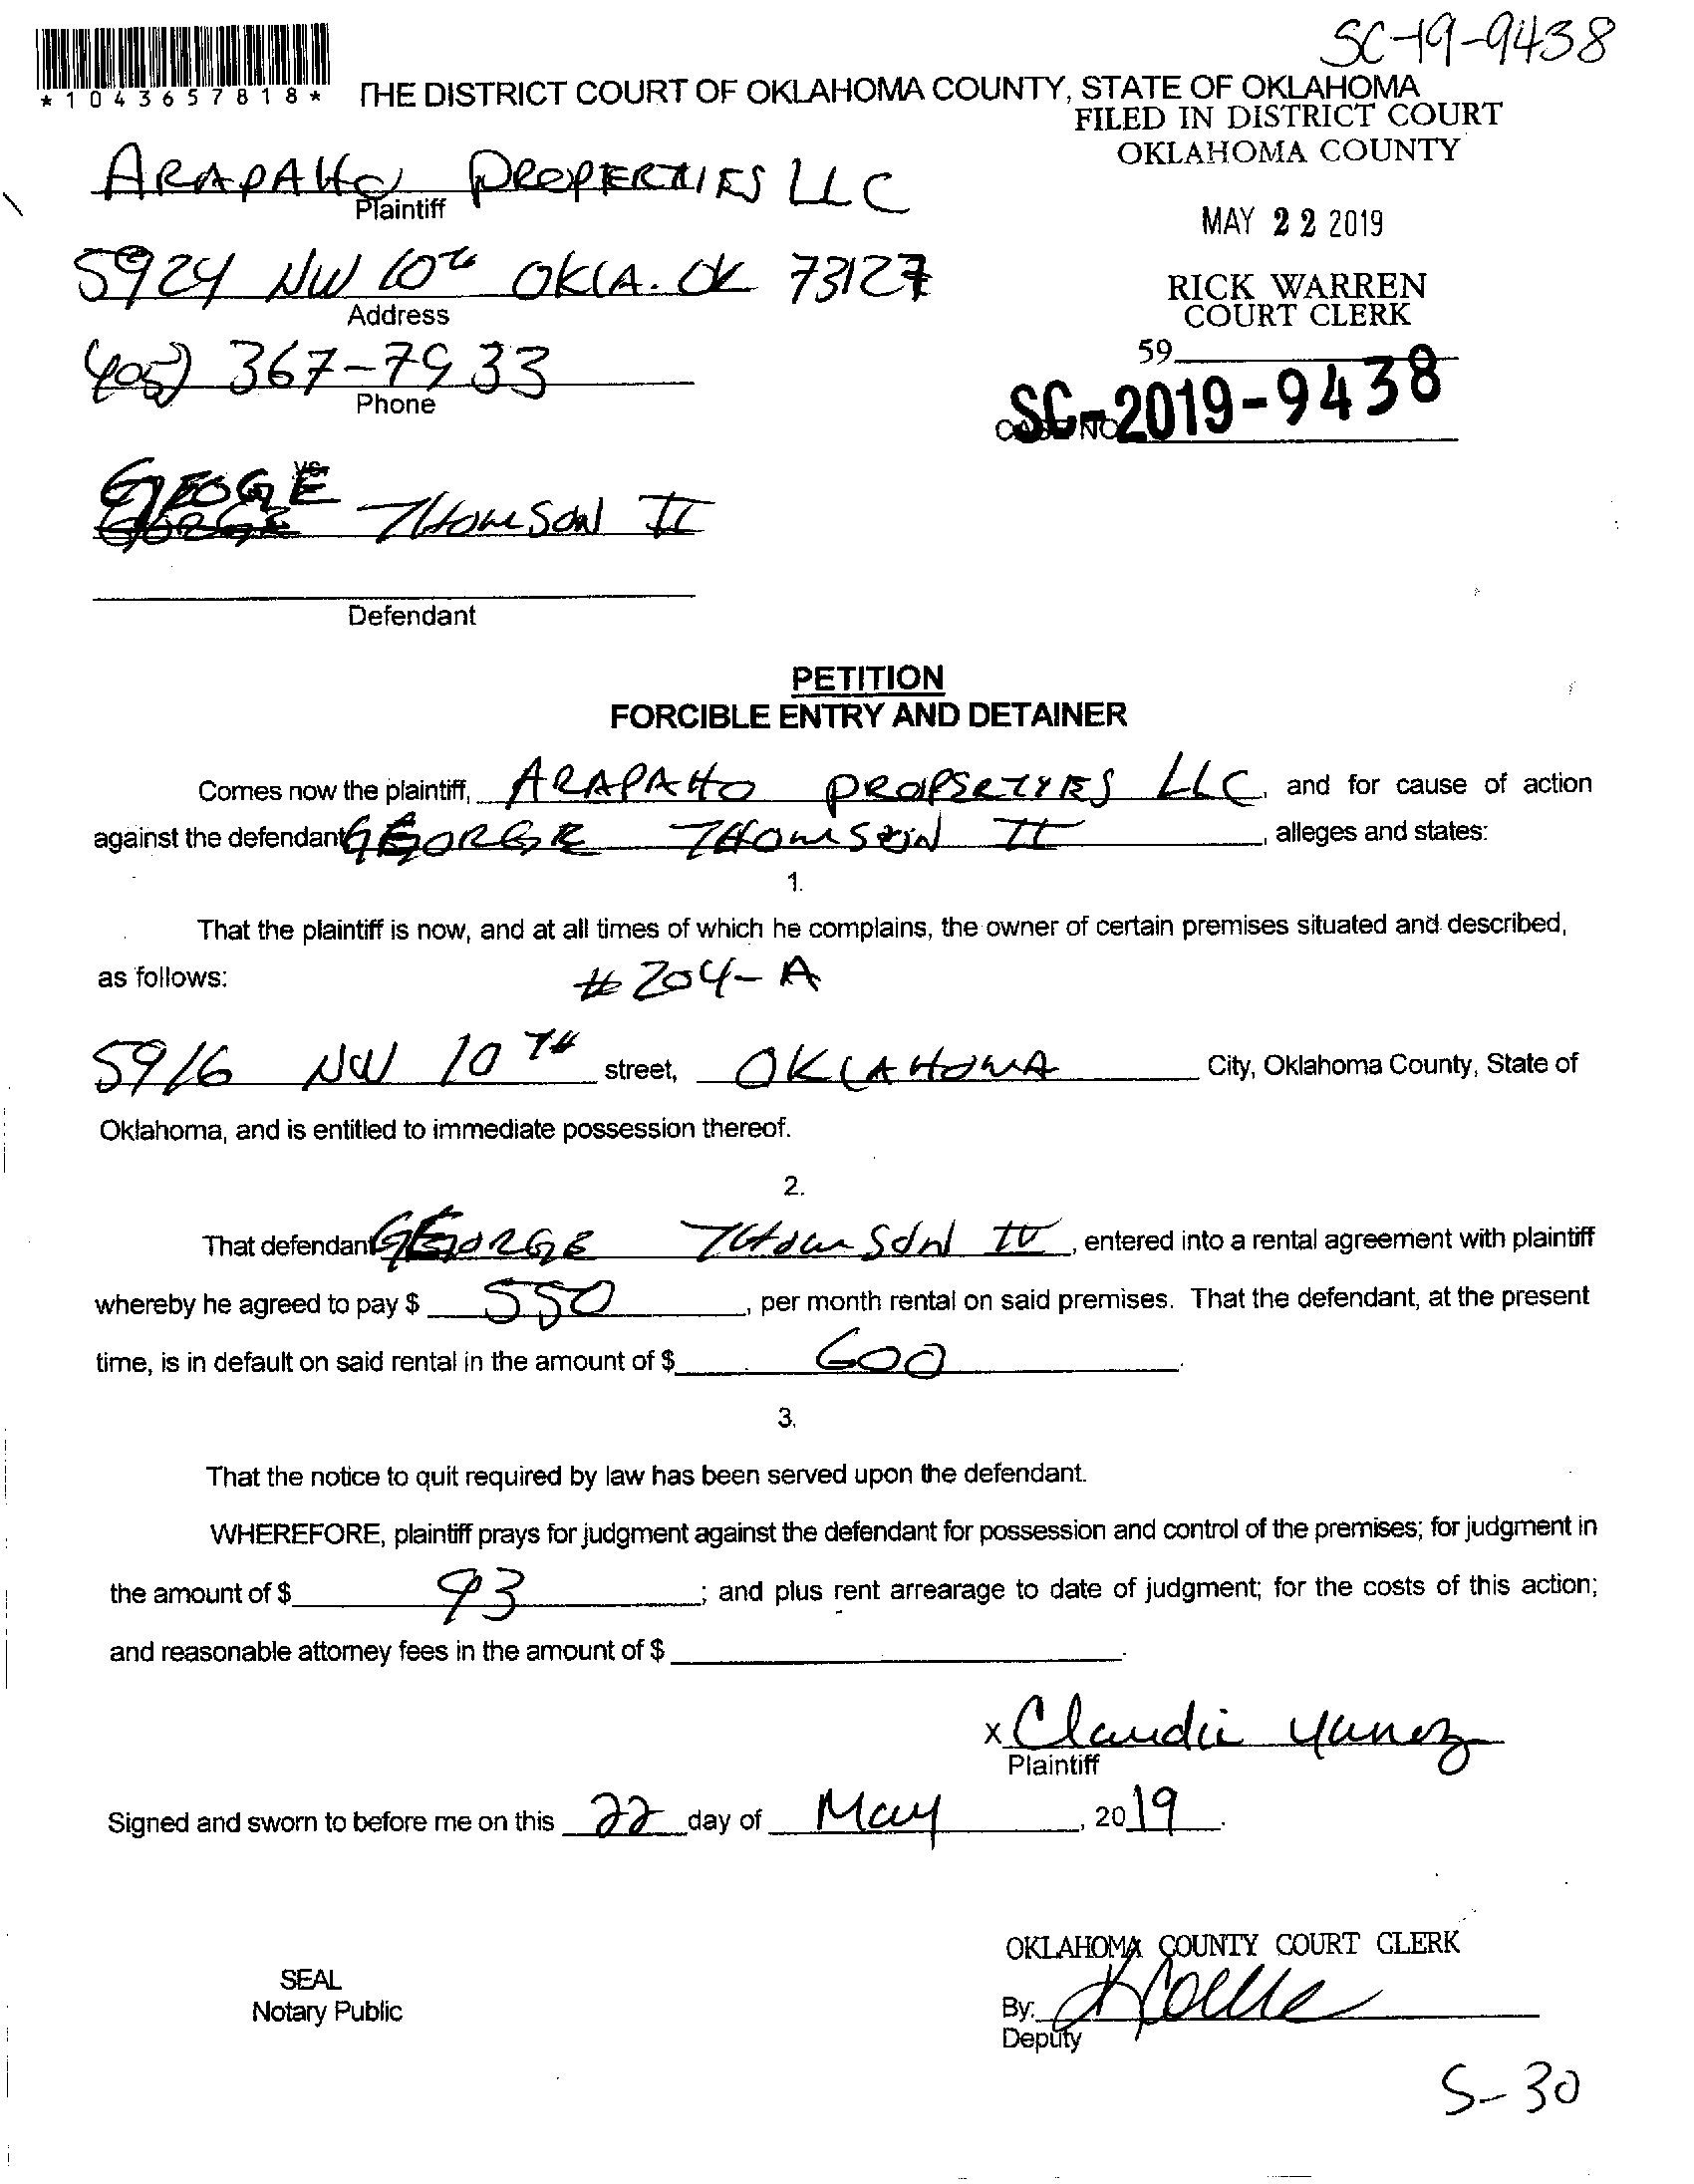 SC-19-9438
*1043657818*
THE DISTRICT COURT OF OKLAHOMA COUNTY, STATE OF OKLAHOMA
FILED IN DISTRICT COURT
OKLAHOMA COUNTY
ARAPAHO PROPERTIES LLC
Plaintiff
MAY 22 2019
5924 NW 10th OKLA. OK 73127
Address
RICK WARREN
COURT CLERK
(405) 367-7933
Phone
59
SC-2019-9438
CASE NO
vs.
GEOGE
THOMSON II
Defendant
PETITION
FORCIBLE ENTRY AND DETAINER
Comes now the plaintiff, ARAPAHO PROPERTIES LLC, and for cause of action
against the defendant GEORGE THOMSON II, alleges and states:
1.
That the plaintiff is now, and at all times of which he complains, the owner of certain premises situated and described,
as follows: # 204-A
5916 NW 10TH street, OKLAHOMA City, Oklahoma County, State of
Oklahoma, and is entitled to immediate possession thereof.
2.
That defendant GEORGE THOMSON II, entered into a rental agreement with plaintiff
whereby he agreed to pay $ 550, per month rental on said premises. That the defendant, at the present
time, is in default on said rental in the amount of $ 600.
3.
That the notice to quit required by law has been served upon the defendant.
WHEREFORE, plaintiff prays for judgment against the defendant for possession and control of the premises; for judgment in
the amount of $ 93; and plus rent arrearage to date of judgment; for the costs of this action;
and reasonable attorney fees in the amount of $ .
x Claudia Yanez
Plaintiff
Signed and sworn to before me on this 22 day of May, 2019.
OKLAHOMA COUNTY COURT CLERK
SEAL
Notary Public
By:
Deputy
S-30